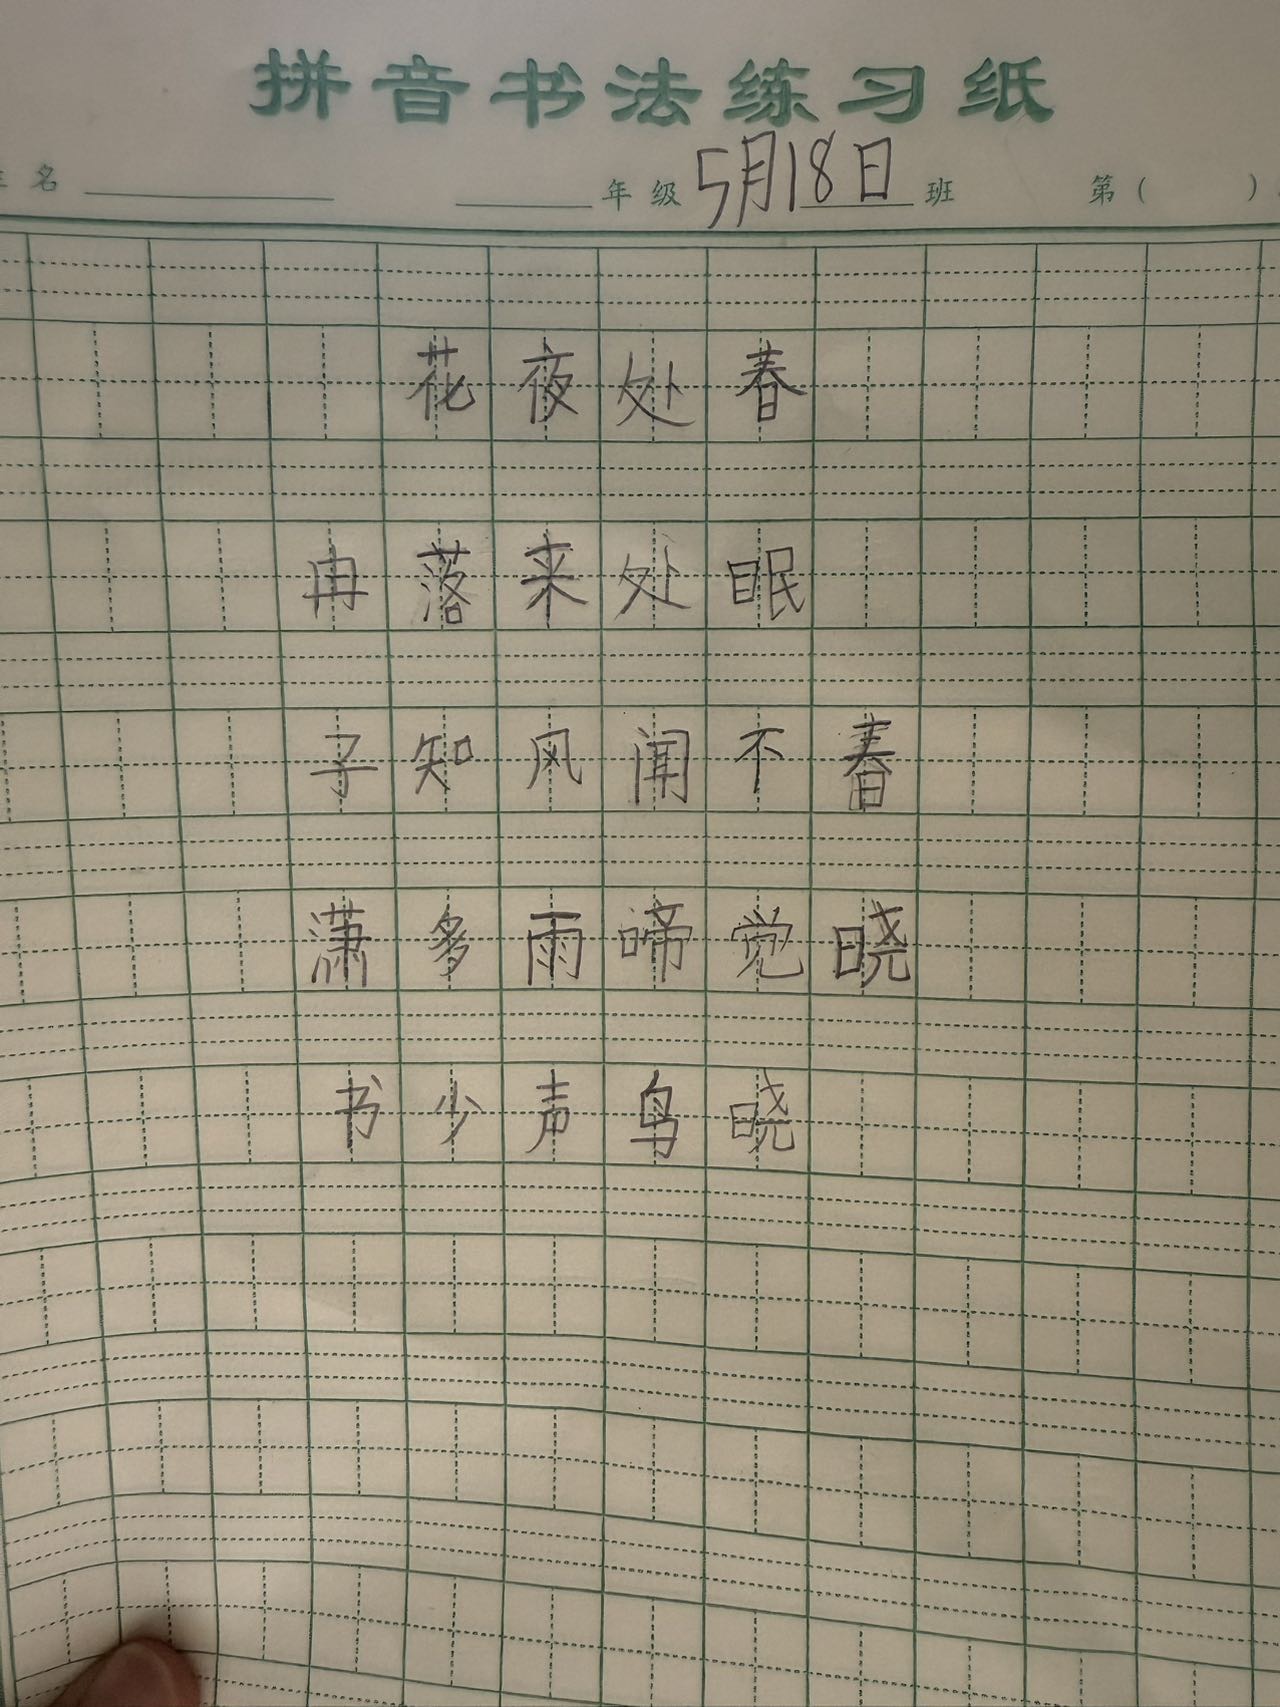 拼音书法练习纸
名 年级 5月18日 班 第( )
花夜处春
冉落来处眠
子知风闻不春
潇多雨啼觉晓
书少声鸟晓